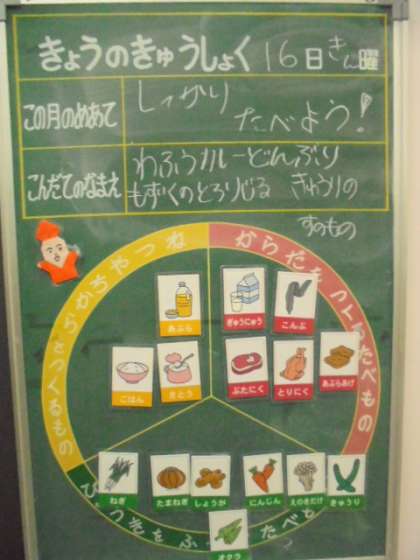 きょうのきゅうしょく 16日 きん曜
この月のめあて
しっかり
たべよう!
こんだてのなまえ
わふうカレーどんぶり
もずくのとろりじる きゅうりの
すのもの
ねつやちからをつくるもの
からだをつくるたべもの
あぶら
ぎゅうにゅう
こんぶ
ごはん
さとう
ぶたにく
とりにく
あぶらあげ
ねぎ
たまねぎ
しょうが
にんじん
えのきだけ
きゅうり
オクラ